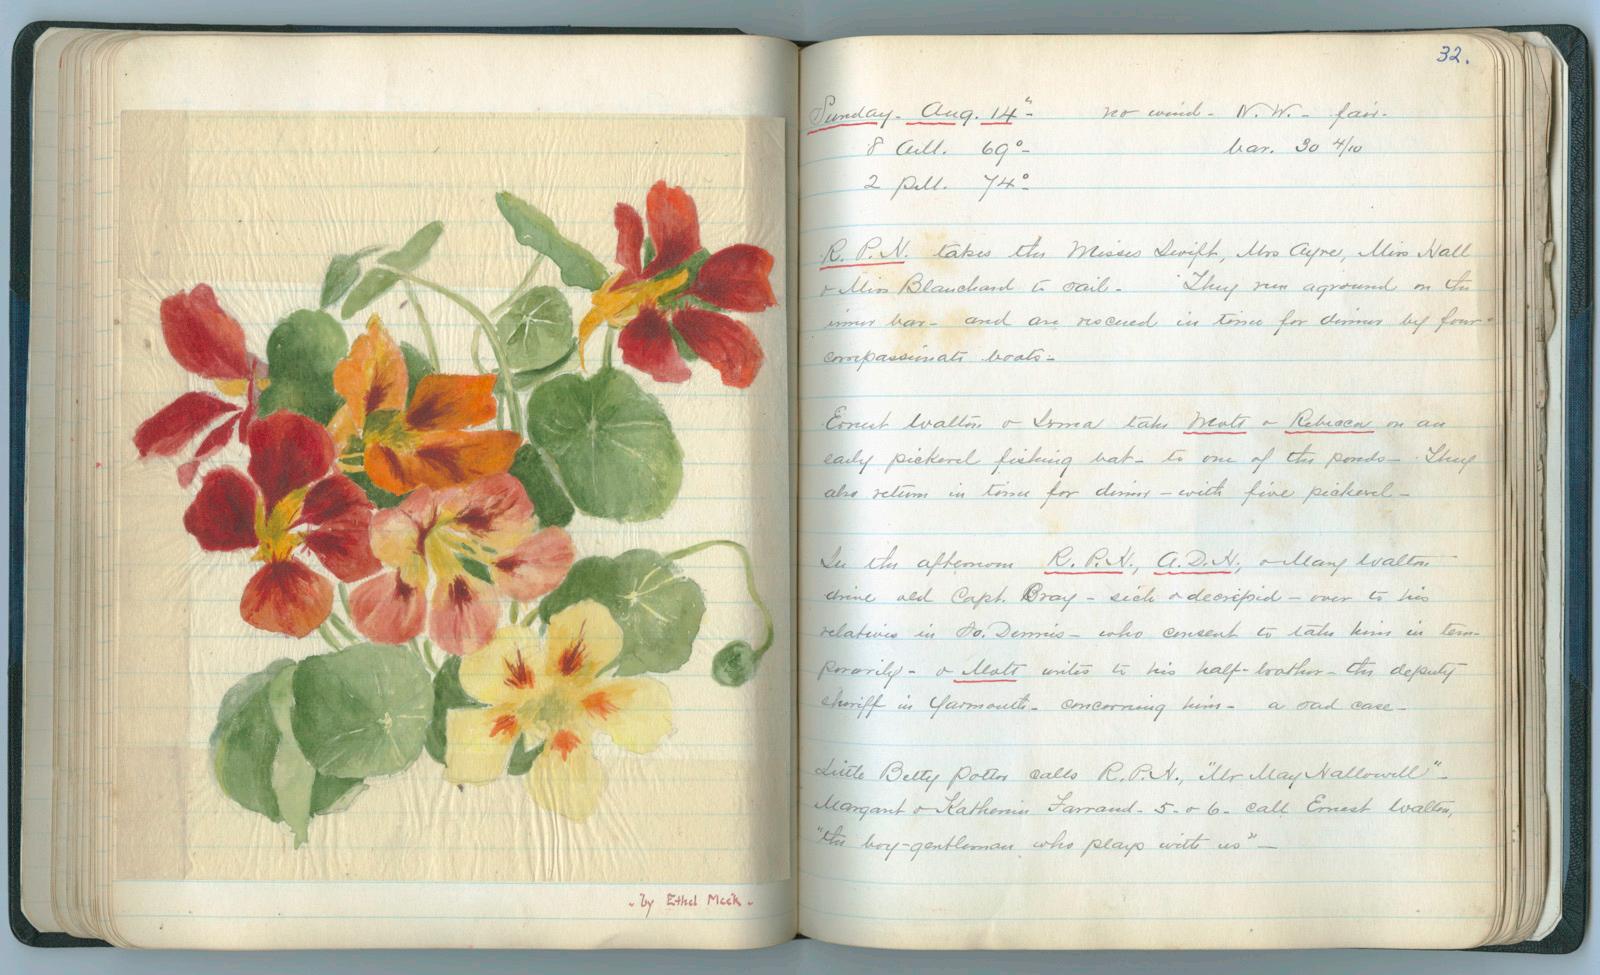 - by Ethel Meek -
32.
Sunday - Aug. 14" - no wind - N.W. - fair -
8 A.M. 69° - bar. 30 4/10
2 P.M. 74° -
R. P. H. takes the Misses Swift, Mrs Ayre, Miss Hall
& Miss Blanchard to sail - They run aground on the
inner bar - and are rescued in time for dinner by four
compassionate boats -
Ernest Walton & Lorna take Mott & Rebecca on an
early pickerel fishing bat - to one of the ponds - They
also return in time for dinner - with five pickerel -
In the afternoon R. P. H., A. D. H., & Mary Walton
drive old Capt. Bray - sick & decripid - over to his
relatives in So. Dennis - who consent to take him in tem-
porarily - & Mott writes to his half-brother - the deputy
sheriff in Yarmouth - concerning him - a sad case -
Little Betty Potter calls R. P. H., "Mr May Hallowell" -
Margaret & Katherine Farrand - 5 - & 6 - call Ernest Walton,
"the boy-gentleman who plays with us" -